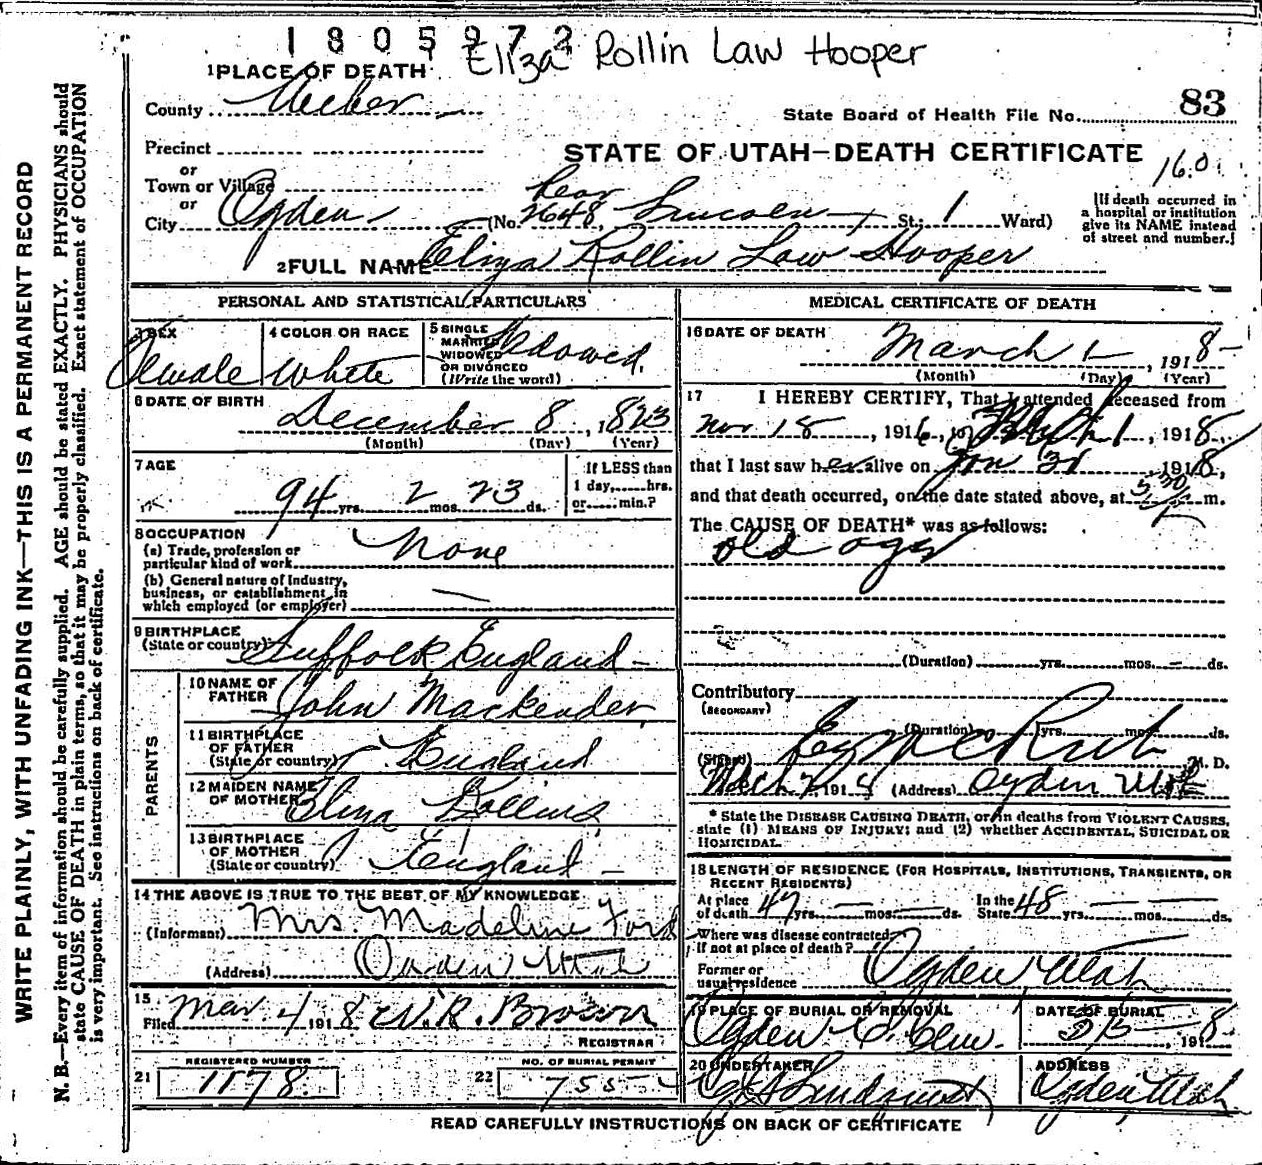 1805972
Eliza Rollin Law Hooper
1 PLACE OF DEATH
County Weber
State Board of Health File No. 83
Precinct
STATE OF UTAH—DEATH CERTIFICATE
160
or
Town or Village
or
City Ogden (No. Rear 2648, Lincoln St.; 1 Ward)
[If death occurred in
a hospital or institution
give its NAME instead
of street and number.]
2 FULL NAME Eliza Rollin Law Hooper
PERSONAL AND STATISTICAL PARTICULARS
3 SEX
Female
4 COLOR OR RACE
White
5 SINGLE
MARRIED
WIDOWED
OR DIVORCED
(Write the word)
Widowed.
6 DATE OF BIRTH
December 8, 1823
(Month) (Day) (Year)
7 AGE
94 yrs. 2 mos. 23 ds.
If LESS than
1 day,......hrs.
or......min.?
8 OCCUPATION
(a) Trade, profession or
particular kind of work None
(b) General nature of industry,
business, or establishment in
which employed (or employer) —
9 BIRTHPLACE
(State or country) Suffolk England —
PARENTS
10 NAME OF
FATHER John Mackender
11 BIRTHPLACE
OF FATHER
(State or country) England
12 MAIDEN NAME
OF MOTHER Rollins
13 BIRTHPLACE
OF MOTHER
(State or country) England —
14 THE ABOVE IS TRUE TO THE BEST OF MY KNOWLEDGE
(Informant) Mrs. Madeline Ford
(Address) Ogden Utah
15
Filed Mar 4 1918 W. R. Brown
REGISTRAR
REGISTERED NUMBER
21 1178.
NO. OF BURIAL PERMIT
22 755
MEDICAL CERTIFICATE OF DEATH
16 DATE OF DEATH
March 1 — , 1918 —
(Month) (Day) (Year)
17 I HEREBY CERTIFY, That I attended deceased from
Nov 18, 1916, to Mch 1, 1918,
that I last saw her alive on Jan 31, 1918,
and that death occurred, on the date stated above, at 5:30 m.
The CAUSE OF DEATH* was as follows:
old age
(Duration) yrs. mos. — ds.
Contributory
(SECONDARY)
(Duration) yrs. mos. ds.
(Signed) M. D.
1918 (Address) Ogden Utah
* State the DISEASE CAUSING DEATH, or in deaths from VIOLENT CAUSES,
state (1) MEANS OF INJURY; and (2) whether ACCIDENTAL, SUICIDAL OR
HOMICIDAL.
18 LENGTH OF RESIDENCE (FOR HOSPITALS, INSTITUTIONS, TRANSIENTS, OR
RECENT RESIDENTS)
At place
of death 47 yrs. — mos. — ds. In the
State 48 yrs. — mos. — ds.
Where was disease contracted
If not at place of death?
Former or
usual residence Ogden Utah
19 PLACE OF BURIAL OR REMOVAL
Ogden C. Cem.
DATE OF BURIAL
, 1918
20 UNDERTAKER
Lindquist
ADDRESS
Ogden, Utah
READ CAREFULLY INSTRUCTIONS ON BACK OF CERTIFICATE
WRITE PLAINLY, WITH UNFADING INK—THIS IS A PERMANENT RECORD
N. B.—Every item of information should be carefully supplied. AGE should be stated EXACTLY. PHYSICIANS should
state CAUSE OF DEATH in plain terms, so that it may be properly classified. Exact statement of OCCUPATION
is very important. See instructions on back of certificate.